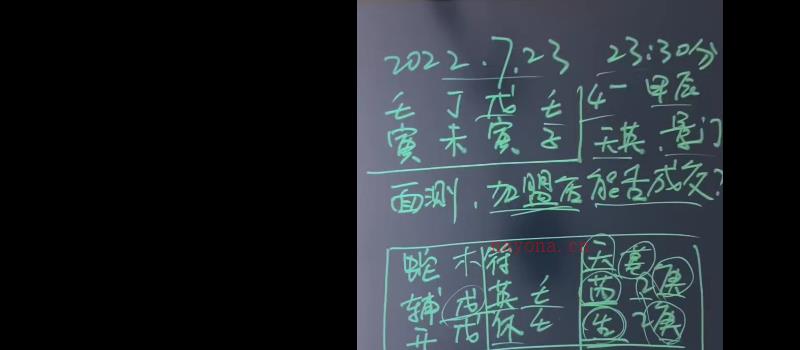 2022.7.23 23:30分
壬 丁 戊 壬 4一 甲辰
寅 未 寅 子 天英.景门
面测,加盟店能否成交?
蛇 木 符 天
辅 戊 英 壬 芮 庚
开 戊 休 壬 生 庚